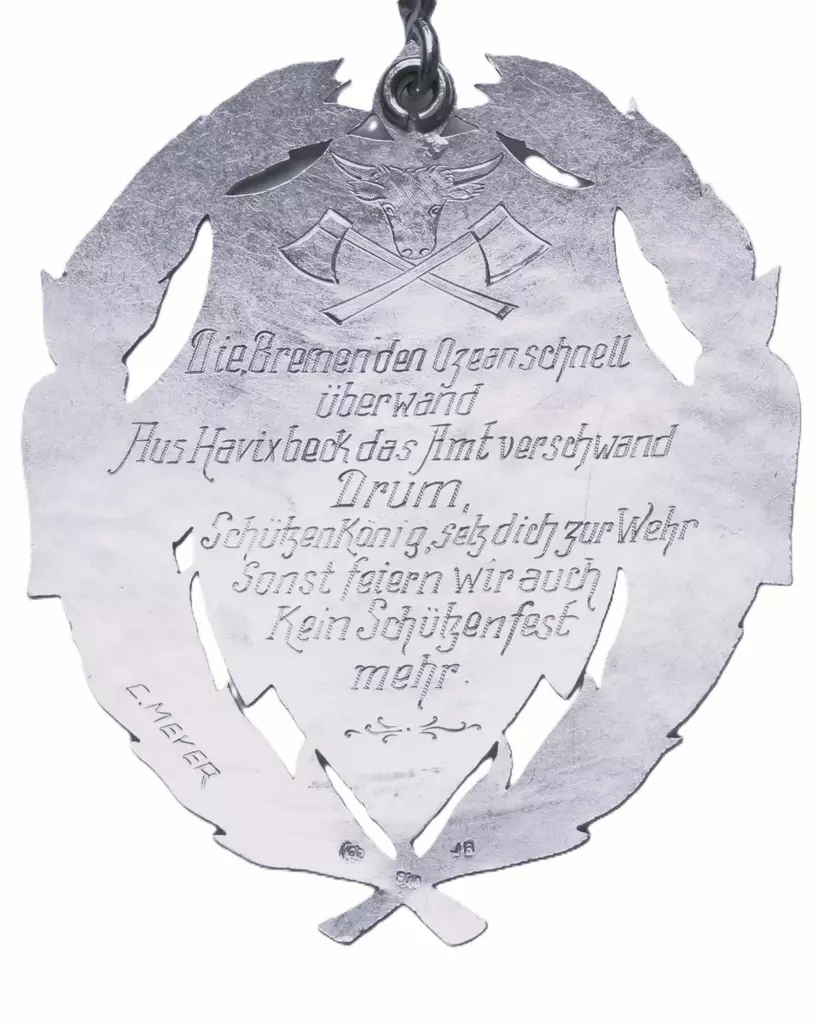 Die „Bremen“ den Ozean schnell
überwand
Aus Havixbeck das Amt verschwand
Drum,
Schützenkönig, setz dich zur Wehr
Sonst feiern wir auch
Kein Schützenfest
mehr.
C. MEYER
JB
800